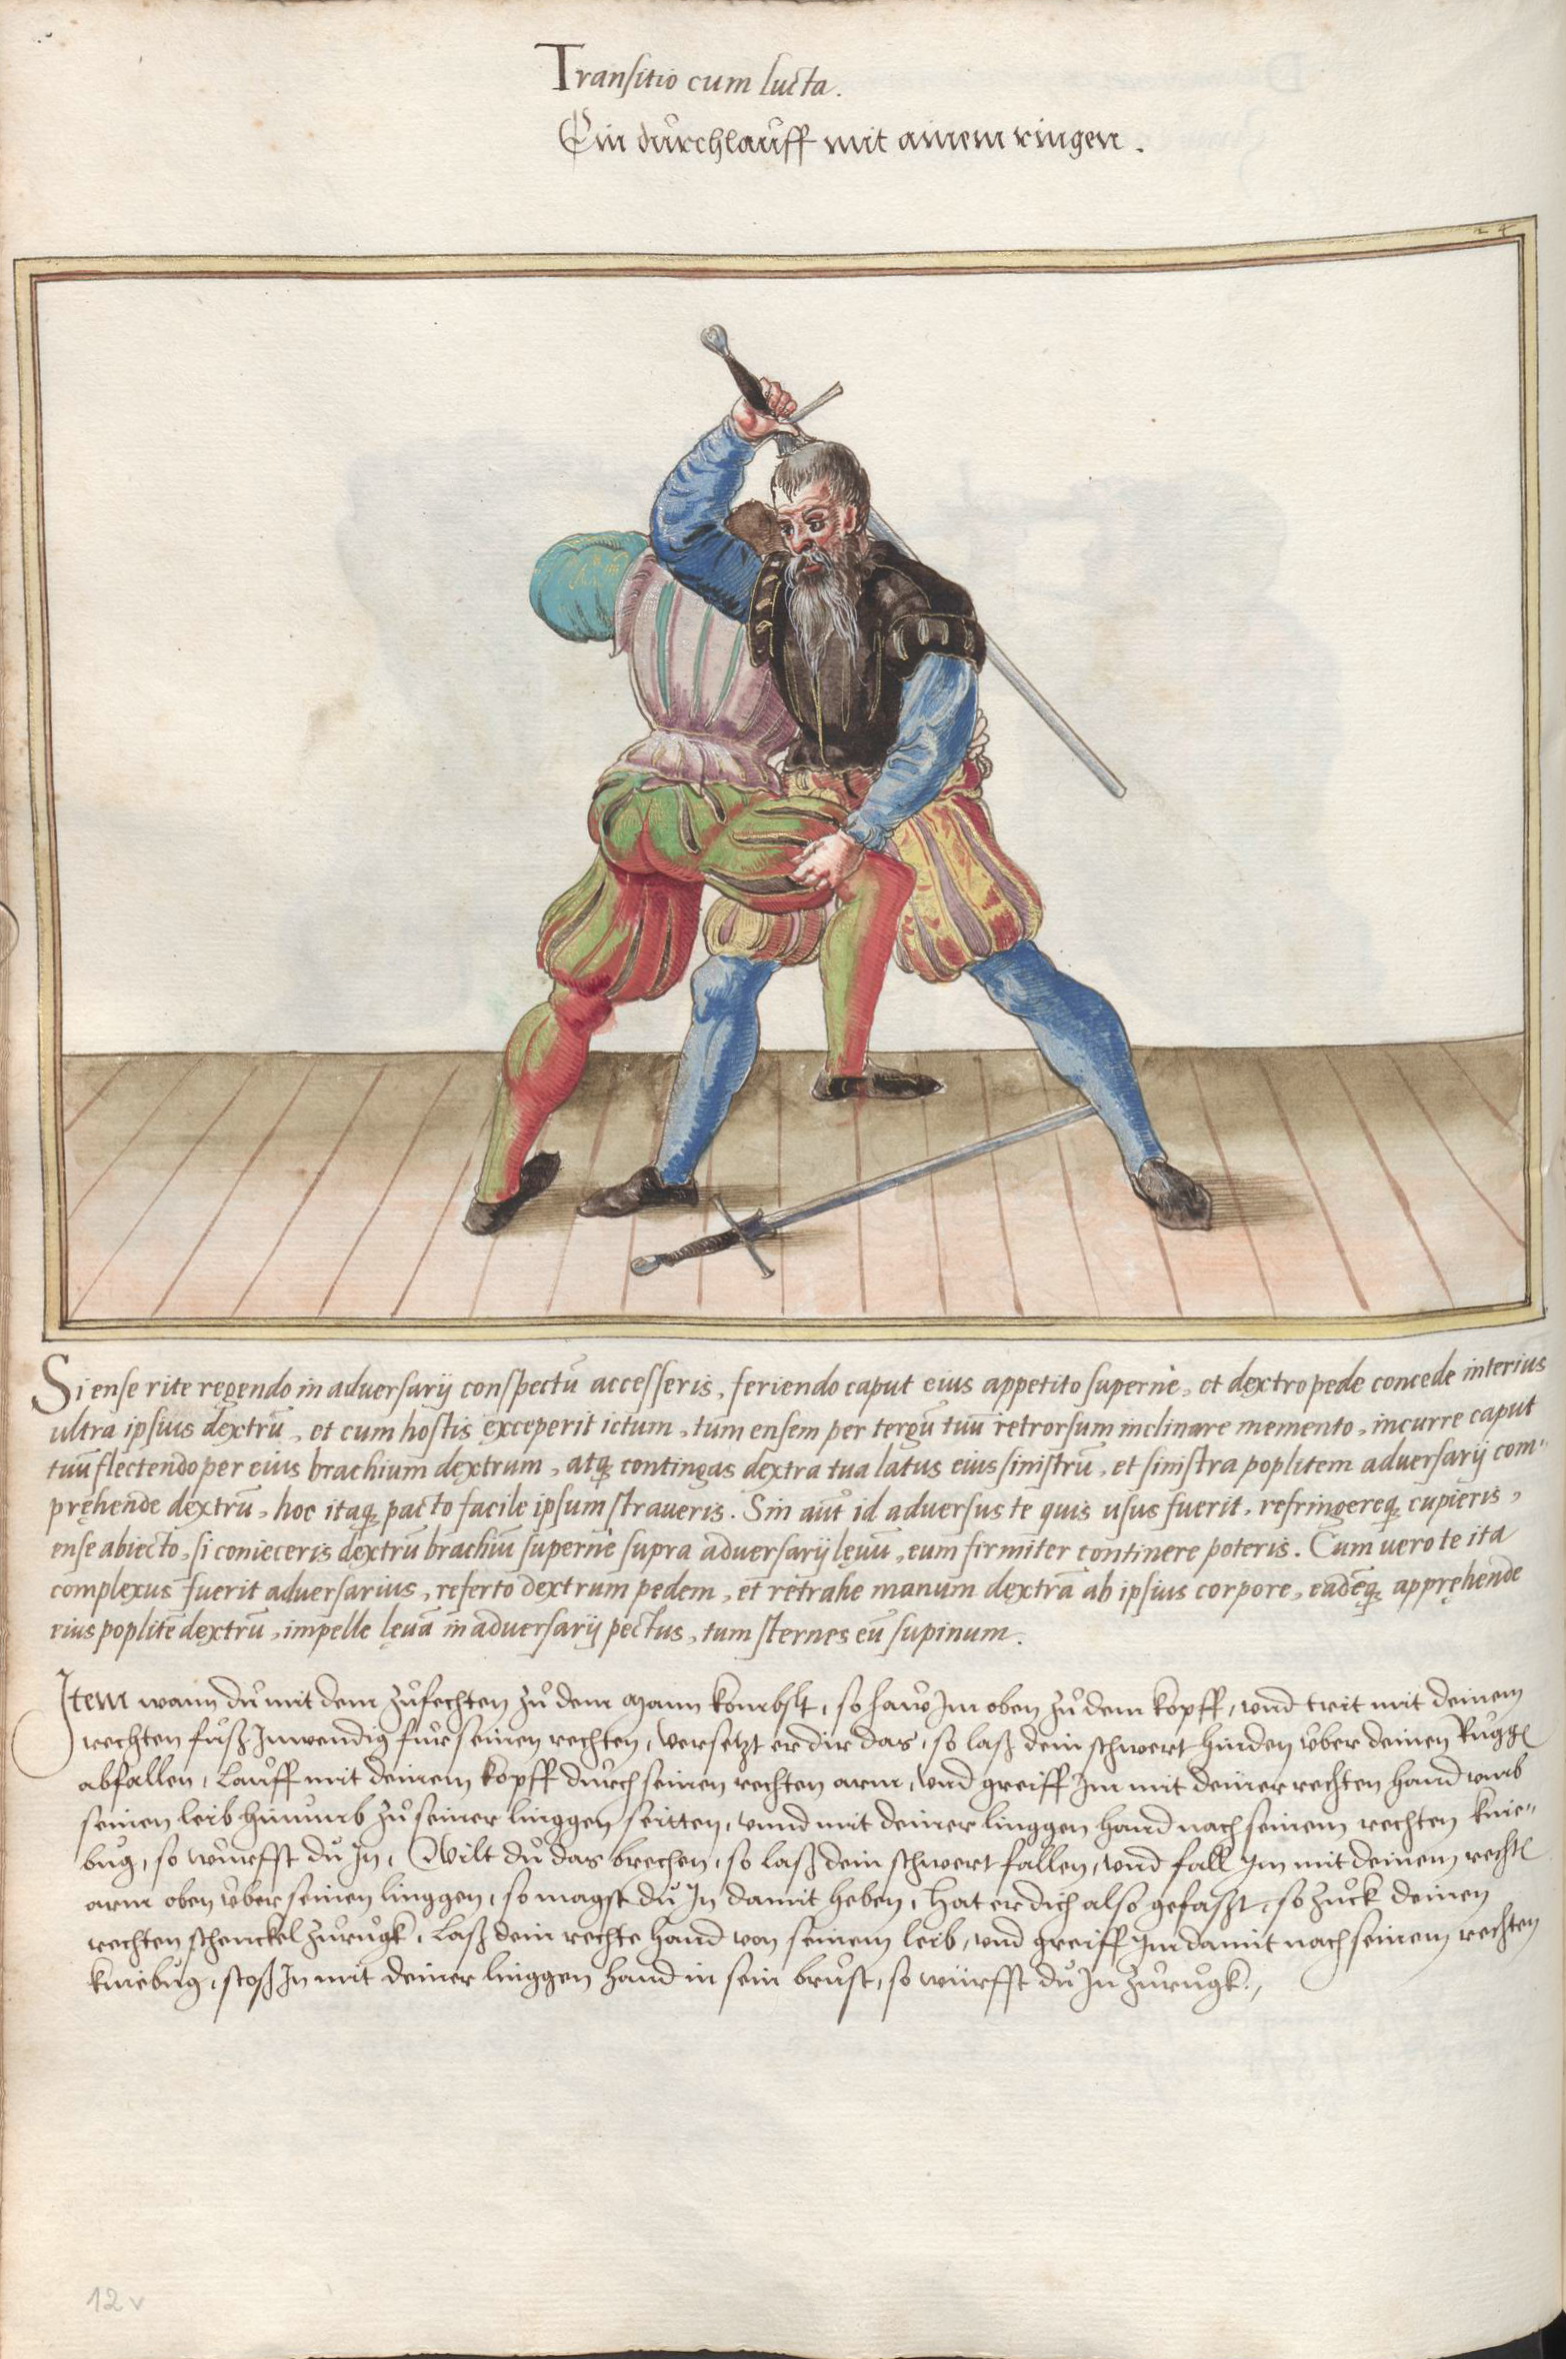 Transitio cum lucta.
Ein durchlauff mit ainem ringen.
24
Si ense rite regendo in adversarij conspectū accesseris, feriendo caput eius appetito superne, et dextro pede concede interius
ultra ipsius dextrū, et cum hostis exceperit ictum, tum ensem per tergū tuū retrorsum inclinare memento, incurre caput
tuū flectendo per eius brachium dextrum, atq; contingas dextra tua latus eius sinistrū, et sinistra poplitem adversarij com-
pręhende dextrū, hoc itaq; pacto facile ipsum straveris. Sin aut id adversus te quis usus fuerit, refringereq; cupieris,
ense abiecto, si conieceris dextrū brachiū superne supra adversarij lęvū, eum firmiter continere poteris. Cum vero te ita
complexus fuerit adversarius, referto dextrum pedem, et retrahe manum dextrā ab ipsius corpore, eadēq; appręhende
eius poplitē dextrū, impelle lęvā in adversarij pectus, tum sternes eū supinum.
Item wann du mit dem zůfechten zů dem Mann kombst, so haw Im oben zů dem kopff, und trit mit deinem
rechten fůß Inwendig fůr seinen rechten, versetzt er dir das, so laß dein schwert hinden über deinen Rugg
abfallen, lauff mit deinem kopff durch seinen rechten arm, und greiff Im mit deiner rechten hand umb
seinen leib hinumb zů seiner linggen seitten, unnd mit deiner linggen hand nach seinem rechten knie-
bug, so würffst du In, Wilt du das brechen, so laß dein schwert fallen, und fall Im mit deinem recht
arm oben über seinen linggen, so magst du In damit heben, hat er dich also gefasst, so zuck deinen
rechten schenckel zurugk, laß dein rechte hand von seinem leib, und greiff Im damit nach seinem rechten
kniebug, stoß In mit deiner linggen hand in sein brust, so würffst du In zurugk.
12v